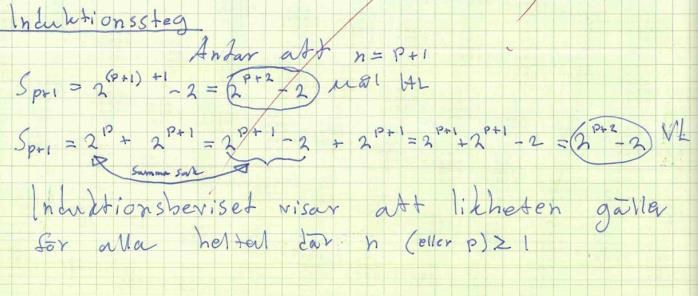 Induktionssteg
Antar att n = p+1
S_{p+1} = 2^{(p+1)+1} - 2 = 2^{p+2} - 2 mål HL
S_{p+1} = 2^p + 2^{p+1} = 2^{p+1} - 2 + 2^{p+1} = 2^{p+1} + 2^{p+1} - 2 = 2^{p+2} - 2 VL
samma sak
Induktionsbeviset visar att likheten gäller
för alla heltal där n (eller p) ≥ 1